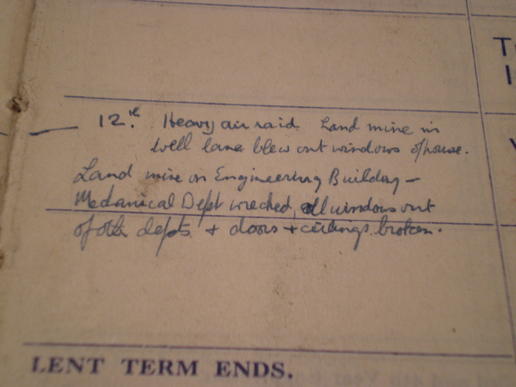 12.th Heavy air raid. Land mine in
well lane blew out windows of house.
Land mine on Engineering Building —
Mechanical Dept wrecked, all windows out
of other depts + doors + ceilings broken.
LENT TERM ENDS.